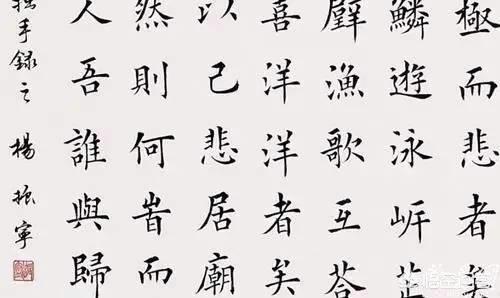 極而悲者矣
鱗遊泳岸芷
璧漁歌互荅
喜洋洋者矣
以己悲居廟
然則何旹而
人吾誰與歸
手錄之 楊振寧